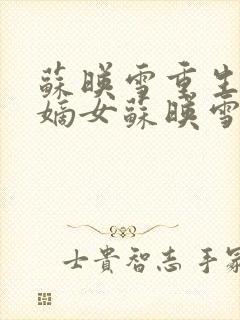 蘇暎雪重生
嫡女蘇暎雪
士貴智志手冢